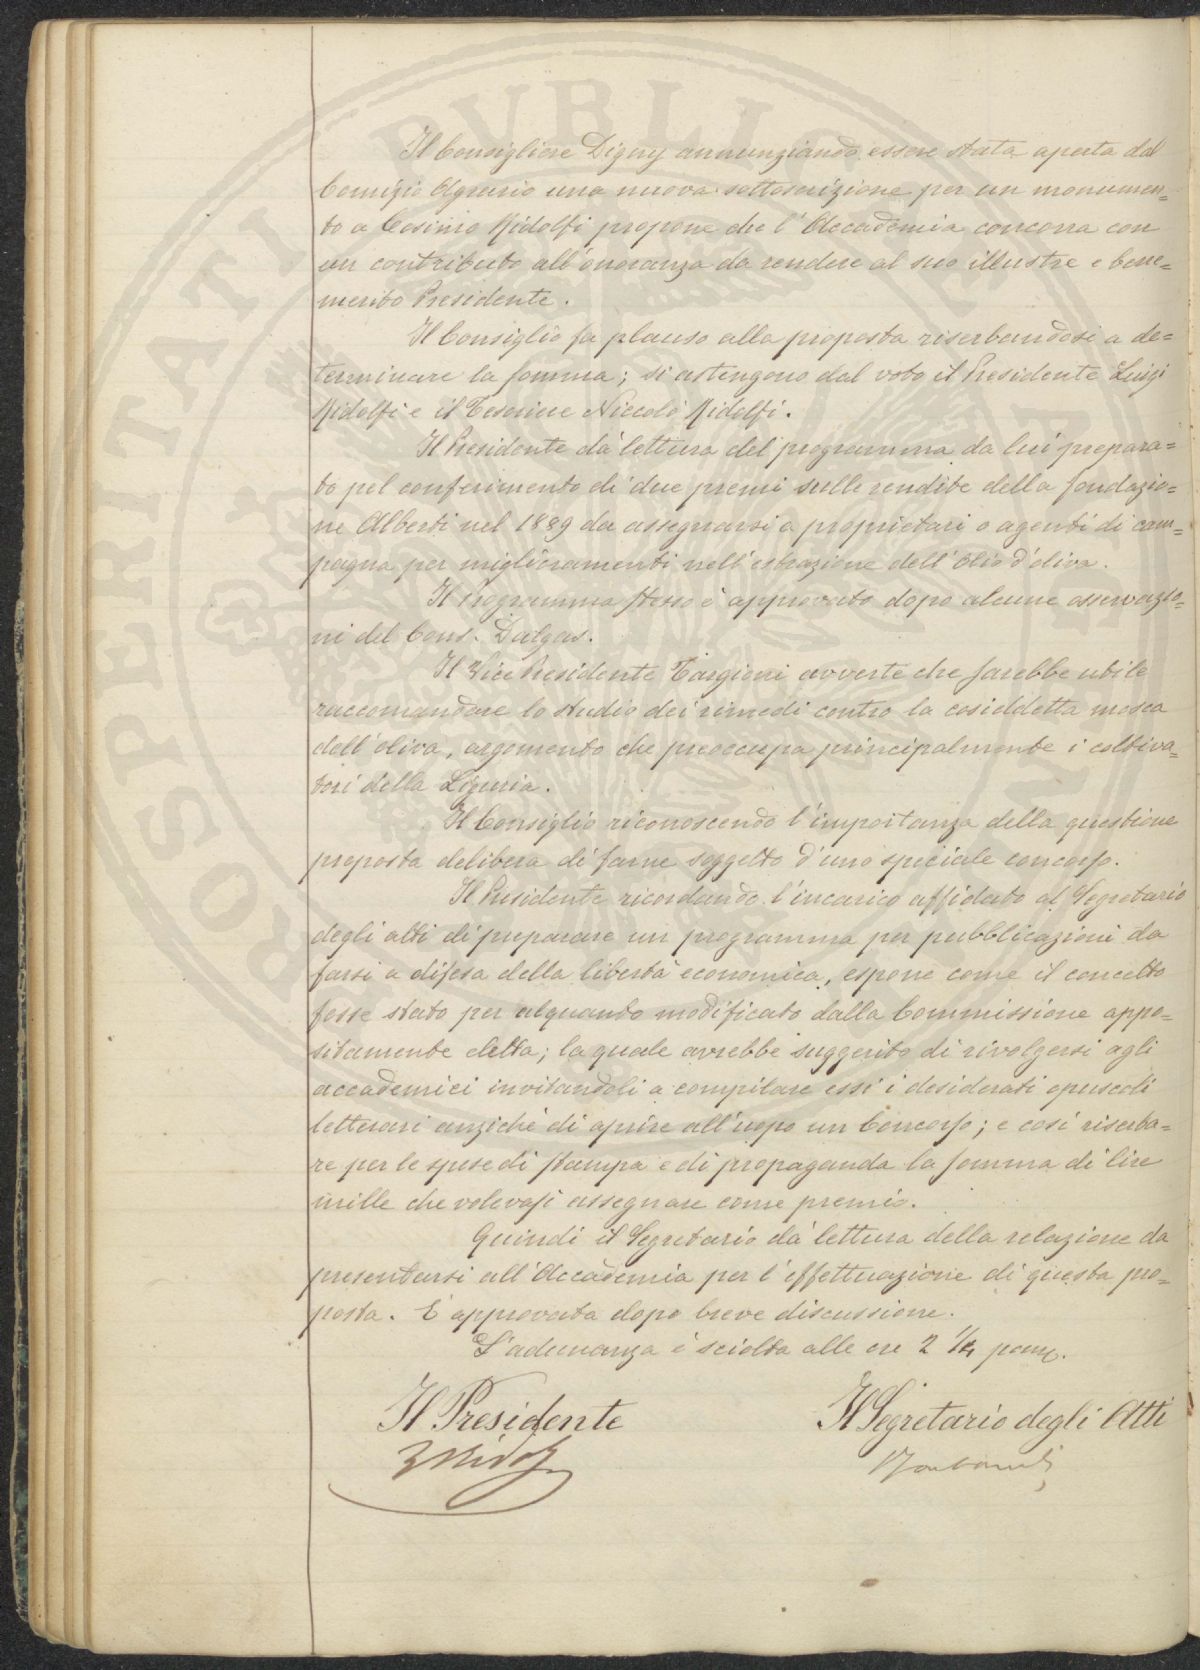 Il Consigliere Digny annunziando essere stata aperta dal
Comizio Agrario una nuova sottoscrizione per un monumen=
to a Cosimo Ridolfi propone che l'Accademia concorra con
un contributo all'onoranza da rendere al suo illustre e bene=
merito Presidente.
Il Consiglio fa plauso alla proposta riserbandosi a de=
terminare la somma; si astengono dal voto il Presidente Luigi
Ridolfi e il Tesoriere Niccolò Ridolfi.
Il Presidente dà lettura del programma da lui prepara=
to pel conferimento di due premi sulle rendite della fondazio=
ne Alberti nel 1889 da assegnarsi a proprietari o agenti di cam=
pagna per miglioramenti nell'estrazione dell'Olio d'oliva.
Il Programma stesso è approvato dopo alcune osservazio=
ni del Cons. Dalgas.
Il Vice Presidente Targioni avverte che sarebbe utile
raccomandare lo studio dei rimedi contro la cosiddetta mosca
dell'oliva, argomento che preoccupa principalmente i coltiva=
tori della Liguria.
Il Consiglio riconoscendo l'importanza della questione
proposta delibera di farne soggetto d'uno speciale concorso.
Il Presidente ricordando l'incarico affidato al Segretario
degli atti di preparare un programma per pubblicazioni da
farsi a difesa della libertà economica, espone come il concetto
fosse stato per alquanto modificato dalla Commissione appo=
sitamente eletta; la quale avrebbe suggerito di rivolgersi agli
accademici invitandoli a compilare essi i desiderati opuscoli
letterari anziché di aprire all'uopo un Concorso; e così riserba=
re per le spese di stampa e di propaganda la somma di lire
mille che volevasi assegnare come premio.
Quindi il Segretario dà lettura della relazione da
presentarsi all'Accademia per l'effettuazione di questa pro=
posta. È approvata dopo breve discussione.
L'adunanza è sciolta alle ore 2 1/4 pom.
Il Presidente
Il Segretario degli Atti
L Ridolfi
PROSPERITATI PVBLICAE